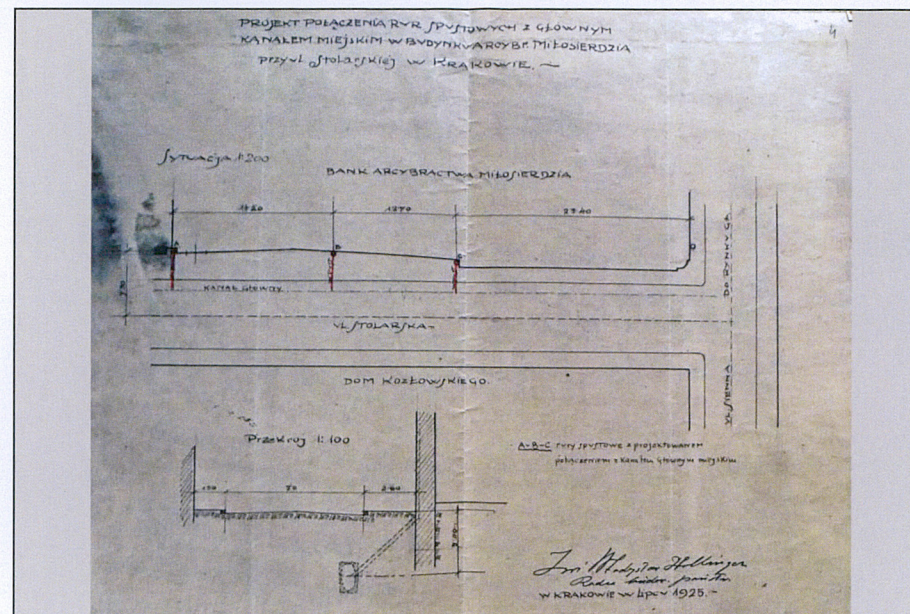 4
PROJEKT POŁĄCZENIA RUR SPUSTOWYCH Z GŁÓWNYM
KANAŁEM MIEJSKIM W BUDYNKU ARCYBR. MIŁOSIERDZIA
przy ul. Stolarskiej w KRAKOWIE. —
Sytuacja 1:200
BANK ARCYBRACTWA MIŁOSIERDZIA
1270
2340
A
B
KANAŁ GŁÓWNY
UL. STOLARSKA —
DOM KOZŁOWSKIEGO.
Przekrój 1:100
A-B-C rury spustowe z projektowanem
połączeniem z kanałem głównym miejskim
Władysław
Radca budow. państw.
W KRAKOWIE W LIPCU 1925. —